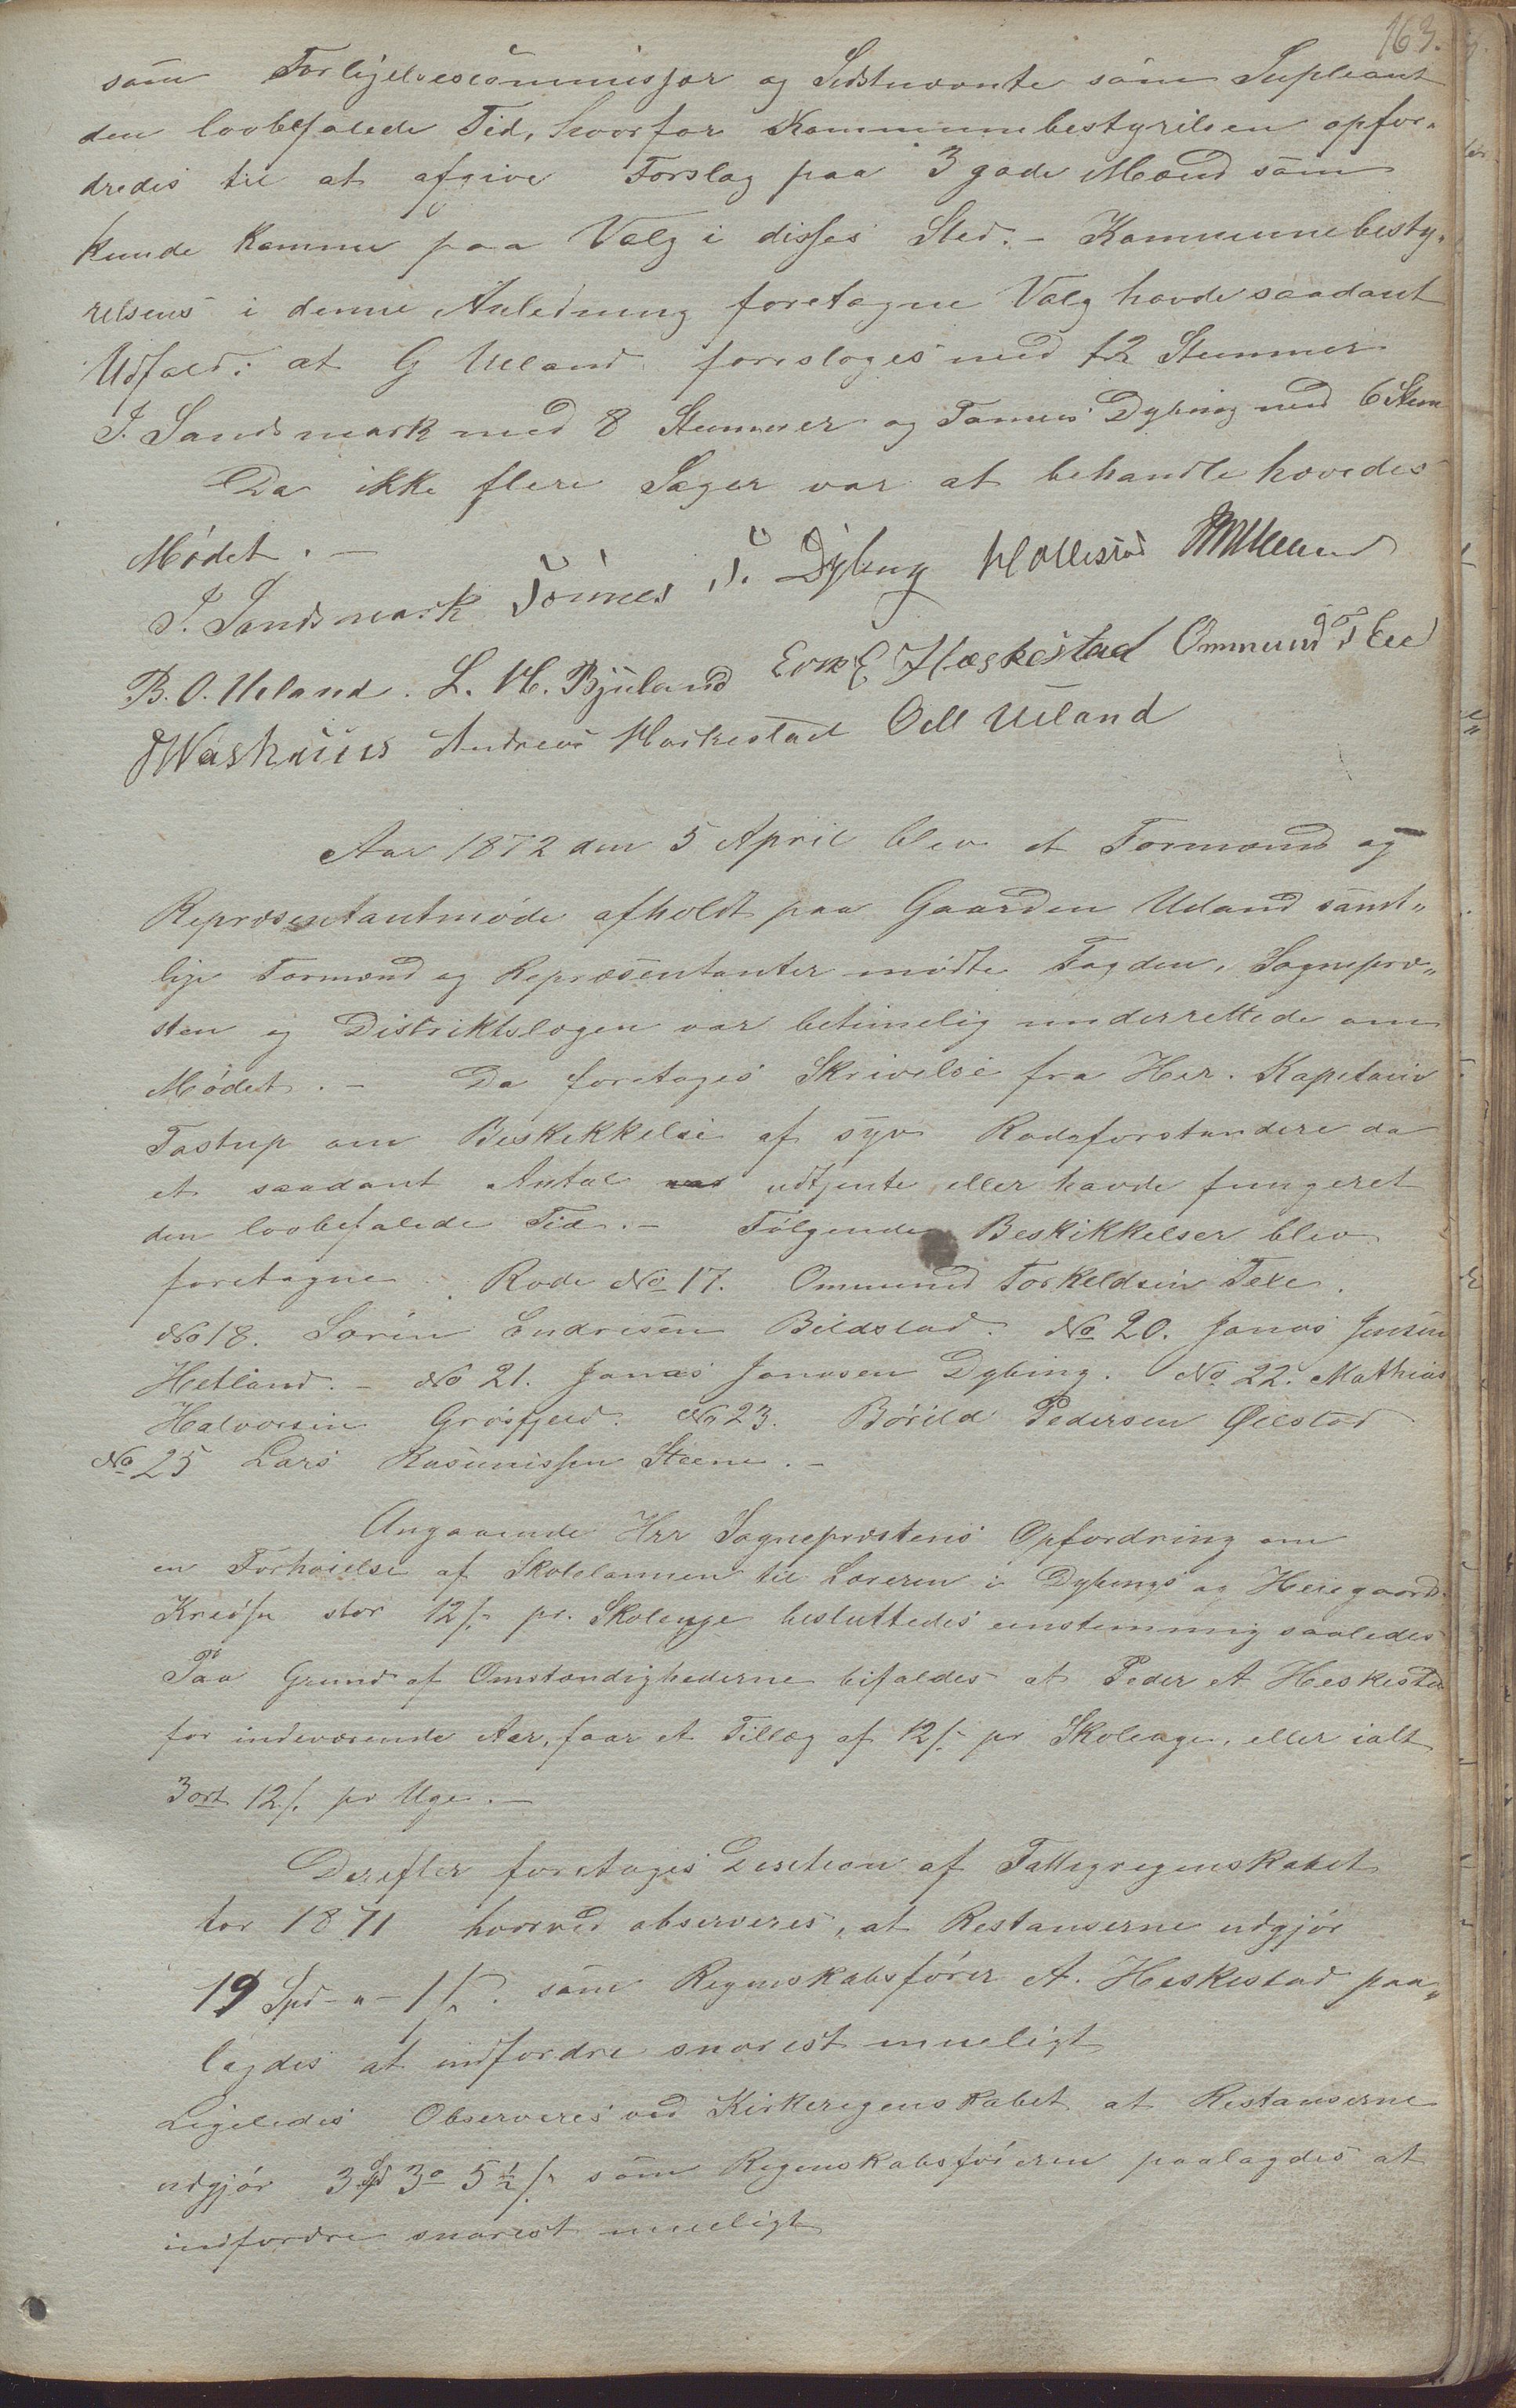 163.
som Forligelsescommissær og Sidstnævnte som Supleant
den lovbefalede Tid, hvorfor Kommunebestyrelsen opfor„
dredes til at afgive Forslag paa 3 gode Mænd som
kunde komme paa Valg i disses Sted. - Kommunebesty„
relsens i denne Anledning foretagne Valg havde saadant
Udfald: at G Ueland foresloges med 12 Stemmer
J. Sandsmark med 8 Stemmer og Tønnes Dybing med 6 Stem
Da ikke flere Sager var at behandle hævedes
Mødet. -
J. Sandsmark Tönnes T. Dybing H Ollestad Ueland
B. O. Ueland. L. H. Bjuland E. Hæskestad Ommund T Eie
Washuus Andreas Haskestad Odd Ueland
Aar 1872 den 5 April blev et Formænd og
Repræsentantmøde afholdt paa Gaarden Ueland samt„
lige Formænd og Repræsentanter mødte Fogden, Sognepræ„
sten og Distriktslægen var betimelig underrettede om
Mødet. - Da foretoges Skrivelse fra Her. Kapitain
Tostup om Beskikkelse af syv Rodeforstandere da
et saadant Antal var udtjente eller havde fungeret
den lovbefalede Tid. - Følgende Beskikkelser blev
foretagne. Rode No 17. Ommund Torkeldsen Tele.
No 18. Sørin Endresen Bildstad. No 20. Jonas Jensen
Hetland. - No 21. Jonas Jonasen Dybing. No 22. Mathias
Halvorsen Grøsfjeld. No 23. Børild Pedersen Ølestad
No 25 Lars Rasmussen Steene. -
Angaaende Herr Sognepræstens Opfordring om
en Forhøielse af Skolelønnen til Læreren i Dybings og Heiegaards
Kredse stor 12 s. pr. Skoleuge besluttedes eenstemmig saaledes
Paa Grund af Omstændighederne bifaldes at Peder A Heskestad
for indeværende Aar, faar et Tillæg af 12 s. pr Skoleuge, eller ialt
3 ort 12 s. pr Uge. -
Derefter foretoges Decition af Fattigregenskabet
for 1871 hvorved observeres, at Restanserne udgjør
19 Spd - „ - 1 s. som Regnskabsfører A. Heskestad paa„
lagdes at indfordre snarest mueligt
Ligeledes Observeres ved Kirkeregenskabet at Restanserne
udgjør 3 Spd 3 o 5 ½ s. som Regenskabsføreren paalagdes at
indfordre snarest mueligt